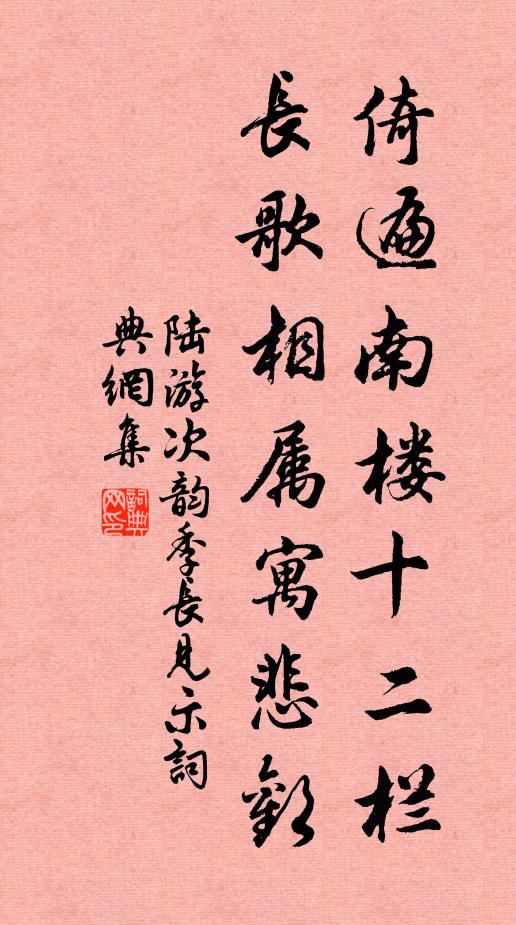 倚遍南楼十二栏
長歌相属寓悲歡
陆游次韵季長見示詞
典網集
詞典網印